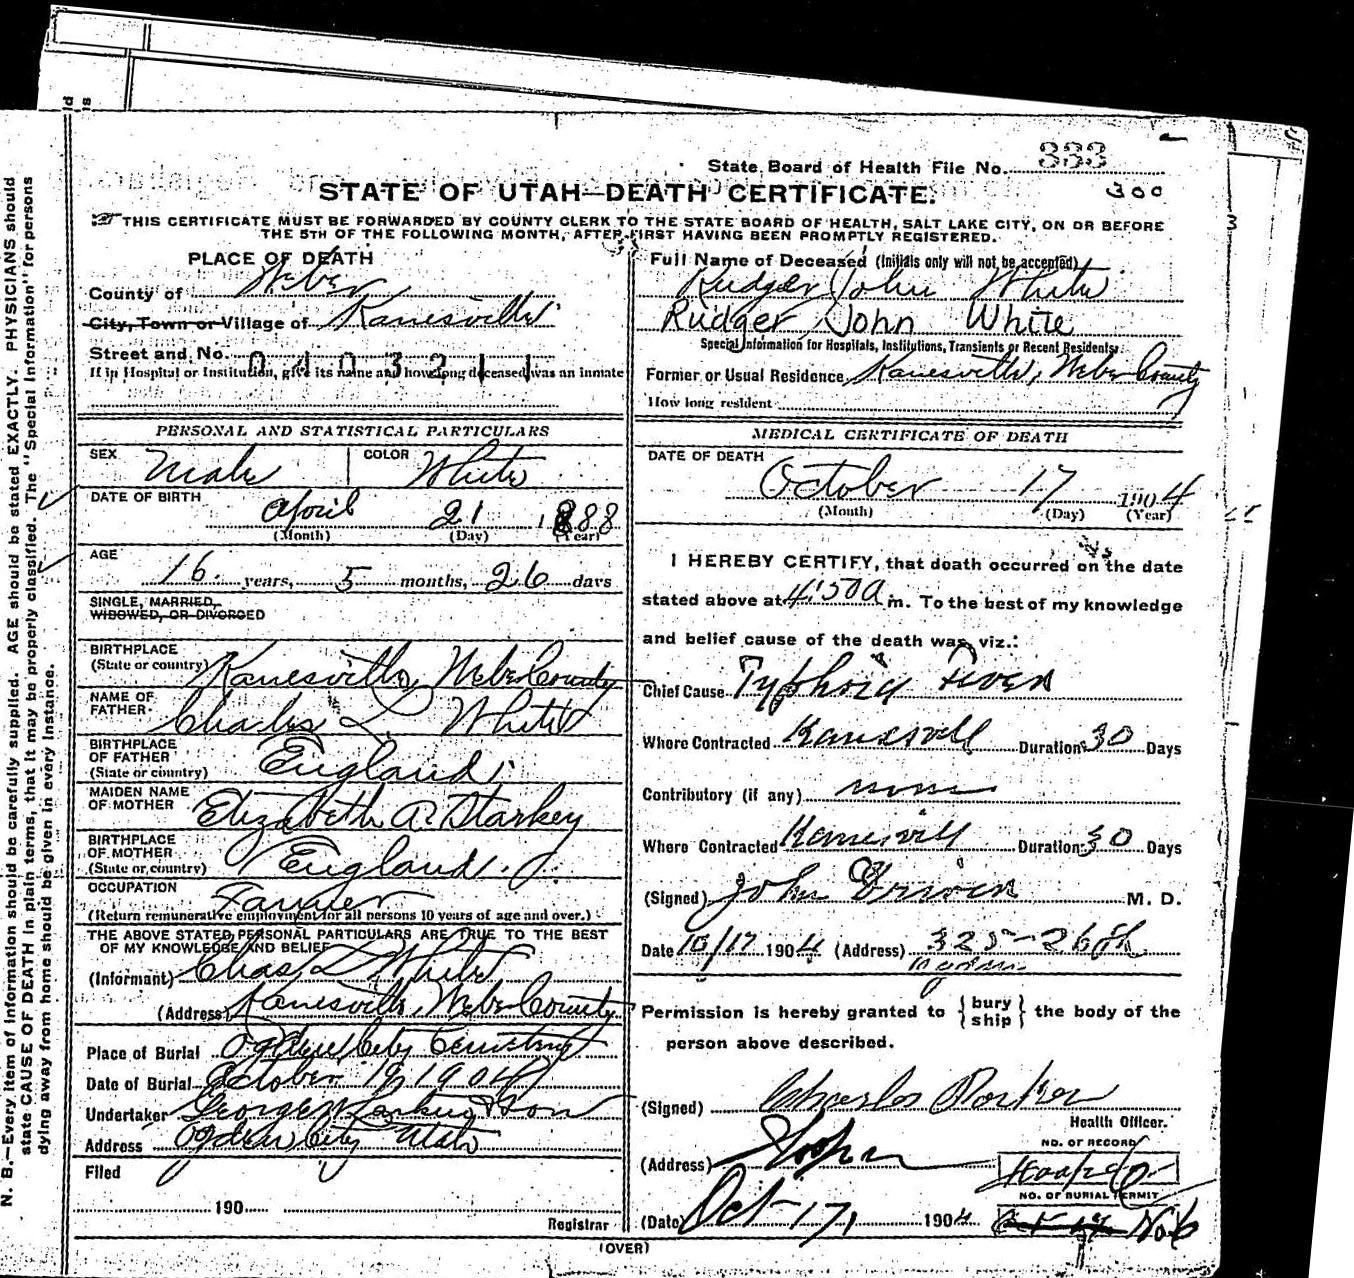 State Board of Health File No. 333
300
STATE OF UTAH—DEATH CERTIFICATE.
THIS CERTIFICATE MUST BE FORWARDED BY COUNTY CLERK TO THE STATE BOARD OF HEALTH, SALT LAKE CITY, ON OR BEFORE
THE 5TH OF THE FOLLOWING MONTH, AFTER FIRST HAVING BEEN PROMPTLY REGISTERED.
PLACE OF DEATH
County of Weber
City, Town or Village of Kanesville
Street and No. 0403211
If in Hospital or Institution, give its name and how long deceased was an inmate
Full Name of Deceased (Initials only will not be accepted)
Rudger John White
Rudger John White
Special Information for Hospitals, Institutions, Transients or Recent Residents:
Former or Usual Residence Kanesville, Weber County
How long resident
PERSONAL AND STATISTICAL PARTICULARS
SEX Male COLOR White
DATE OF BIRTH
April 21 1888
(Month) (Day) (Year)
AGE
16 years, 5 months, 26 days
SINGLE, MARRIED,
WIDOWED, OR DIVORCED
BIRTHPLACE
(State or country) Kanesville, Weber County
NAME OF
FATHER Charles L White
BIRTHPLACE
OF FATHER
(State or country) England
MAIDEN NAME
OF MOTHER Elizabeth A. Starkey
BIRTHPLACE
OF MOTHER
(State or country) England
OCCUPATION
Farmer
(Return remunerative employment for all persons 10 years of age and over.)
THE ABOVE STATED PERSONAL PARTICULARS ARE TRUE TO THE BEST
OF MY KNOWLEDGE AND BELIEF
(Informant) Chas L White
(Address) Kanesville, Weber County
Place of Burial Ogden City Cemetery
Date of Burial October 19, 1904
Undertaker George W Larkin & Son
Address Ogden City Utah
Filed
190
Registrar
MEDICAL CERTIFICATE OF DEATH
DATE OF DEATH
October 17 1904
(Month) (Day) (Year)
I HEREBY CERTIFY, that death occurred on the date
stated above at 4:50 a m. To the best of my knowledge
and belief cause of the death was, viz.:
Chief Cause Typhoid Fever
Where Contracted Kanesvill Duration 30 Days
Contributory (if any) none
Where Contracted Kanesvill Duration 30 Days
(Signed) John M. D.
Date 10/17 1904 (Address) 325-26 St
Ogden
Permission is hereby granted to {bury ship} the body of the
person above described.
(Signed) Charles Parker
Health Officer.
(Address) Hooper
NO. OF RECORD
Hooper
NO. OF BURIAL PERMIT
No 6
(Date) Oct 17, 1904
(OVER)
N. B.—Every item of information should be carefully supplied. AGE should be stated EXACTLY. PHYSICIANS should
state CAUSE OF DEATH in plain terms, that it may be properly classified. The "Special Information" for persons
dying away from home should be given in every instance.